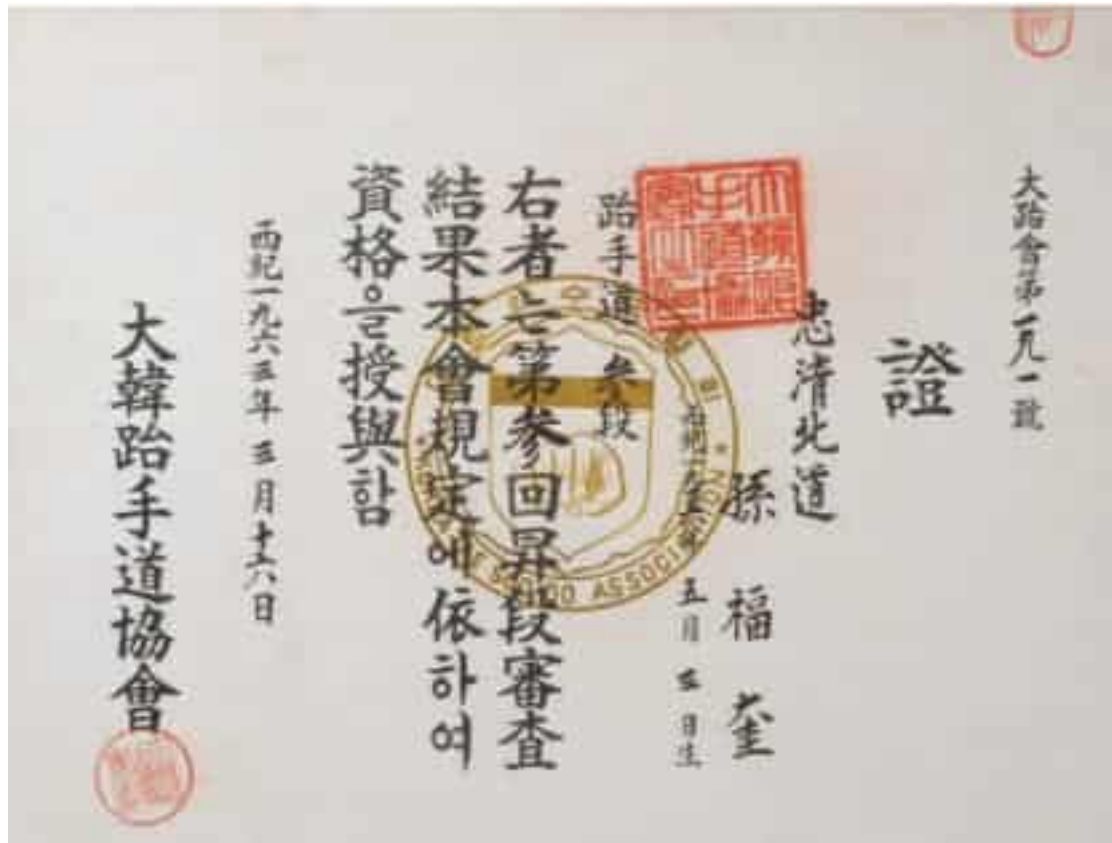 大跆會第一九一號
證
忠清北道
孫福奎
五月 日生
跆手道 參段
右者는第參回昇段審査
結果本會規定에依하여
資格을授與함
西紀一九六三年 三月十六日
大韓跆手道協會
ASSOCIATION